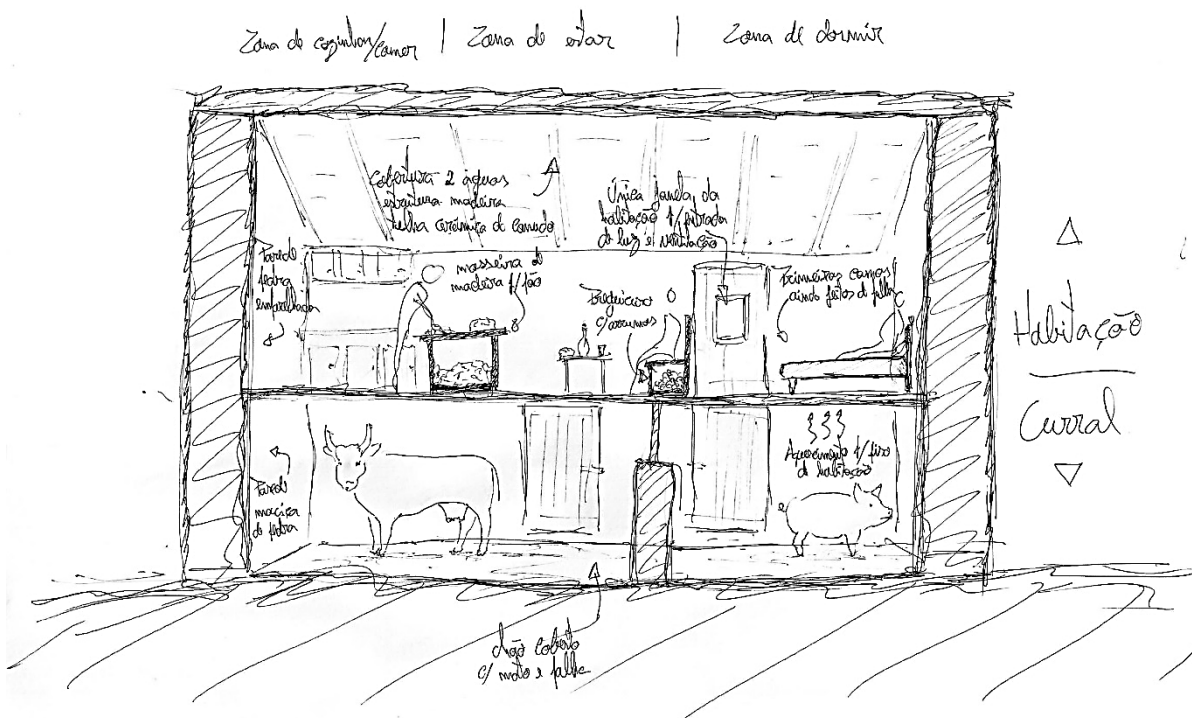 Zona de cozinhar/comer | Zona de estar | Zona de dormir
Cobertura 2 águas
estrutura madeira
telha cerâmica de canudo
Única janela da
habitação p/ entrada
de luz e ventilação
Parede
pedra
masseira de
madeira p/ pão
Preguiceiro
c/ arrumos
Primeiras camas
ainda feitas d palha
Habitação
Curral
Parede
maciça
de pedra
Aquecimento p/ piso
da habitação
chão coberto
c/ mato e palha